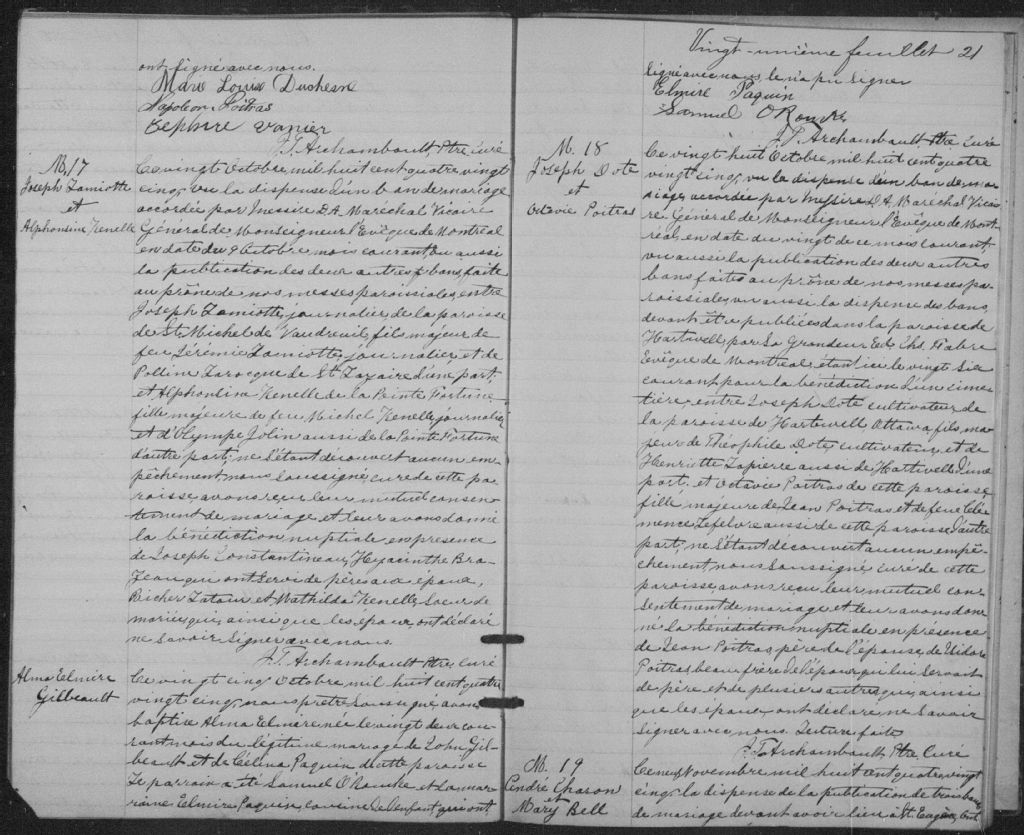 ont signé avec nous.
Marie Louise Duchesne
Napoleon Poitras
Zephirre Vanier
J.T. Archambault, Ptre Curé
M. 17
Joseph Lamiotte
et
Alphonsine Kenelle
Ce vingt Octobre mil huit cent quatre vingt
cinq, vu la dispense d'un ban de mariage
accordée par Messire L.A. Maréchal Vicaire
Général de Monseigneur l'Evêque de Montréal
en date du 9 Octobre mois courant, vu aussi
la publication des deux autres bans, faite
au prône de nos messes paroissiales, entre
Joseph Lamiotte, journalier, de la paroisse
de St. Michel de Vaudreuil, fils majeur de
feu Jérémie Lamiotte, journalier et de
Polline Larocque de St. Lazaire d'une part,
et Alphonsina Kenelle de la Pointe Fortune
fille majeure de feu Michel Kenelle journalier
et d'Olympe Jolin aussi de la Pointe Fortune
d'autre part; ne s'étant découvert aucun em-
pêchement, nous soussigné, curé de cette pa-
roisse, avons reçu leur mutuel consen-
tement de mariage et leur avons donné
la bénédiction nuptiale en présence
de Joseph Constantineau, Hyacinthe Bra-
zeau qui ont servi de pères aux époux,
Richer Latour et Mathilda Kenelle, soeur de
mariée, qui, ainsi que les époux, ont déclaré
ne savoir signer avec nous.
J.T. Archambault Ptre, Curé
Alma Elmire
Gilbeault
Ce vingt cinq Octobre mil huit cent quatre
vingt cinq, nous prêtre soussigné, avons
baptisé Alma Elmire née le vingt deux cou-
rant mois du légitime mariage de John Gil-
beault et de Célina Paquin de cette paroisse
Le parrain a été Samuel O'Rourke et la mar-
raine Elmire Paquin, cousine de l'enfant qui ont
Vingt-unième feuillet 21
signé avec nous, le n'a pu signer
Elmire Paquin
Samuel O'Rourke
J.T. Archambault Ptre Curé
M. 18
Joseph Dote
et
Octavie Poitras
Ce vingt huit Octobre mil huit cent quatre
vingt cinq, vu la dispense d'un ban de ma-
riage, accordée par Messire L.A. Maréchal Vicai-
re Général de Monseigneur l'Evêque de Mont-
réal, en date du vingt de ce mois courant,
vu aussi la publication des deux autres
bans faites au prône de nos messes pa-
roissiales, vu aussi la dispense des bans,
devant être publiées dans la paroisse de
Hartwell, par Sa Grandeur Ed. Chs. Fabre
Evêque de Montréal, étant ici le vingt six
courant pour la bénédiction d'un cime-
tière, entre Joseph Dote cultivateur, de
la paroisse de Hartwell, Ottawa, fils, ma-
jeur de Théophile Dote, cultivateur, et de
Henriette Lapierre aussi de Hartwell d'une
part; et Octavie Poitras de cette paroisse,
fille majeure de Jean Poitras et de feue Clé-
mence Lefebvre aussi de cette paroisse d'autre
part; ne s'étant découvert aucun empê-
chement, nous soussigné curé de cette
paroisse, avons reçu leur mutuel con-
sentement de mariage et leur avons don-
né la bénédiction nuptiale en présence
de Jean Poitras, père de l'épouse, de Isidore
Poitras, beau frère de l'époux, qui lui servait
de père et de plusieurs autres, qui, ainsi
que les époux, ont déclaré, ne savoir
signer avec nous. Lecture faite
J.T. Archambault, Ptre Curé
M. 19
André Charon
et
Mary Bell
Ce neuf Novembre mil huit cent quatre vingt
cinq, la dispense de la publication de trois bans,
de mariage devant avoir lieu à St. Eugène, Ont.